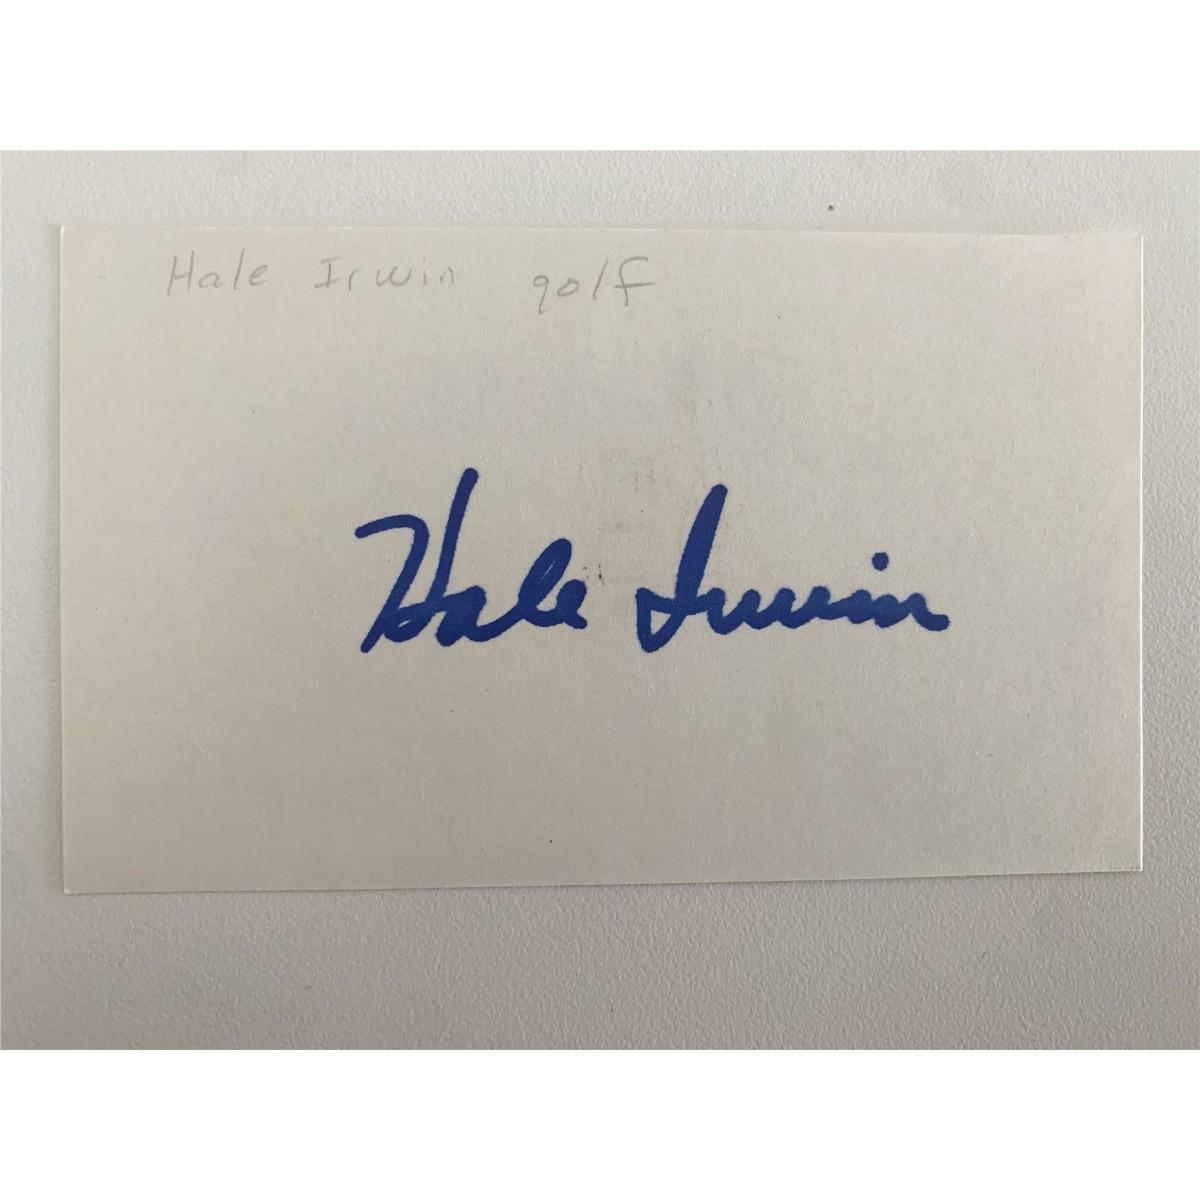 Hale Irwin golf
Hale Irwin